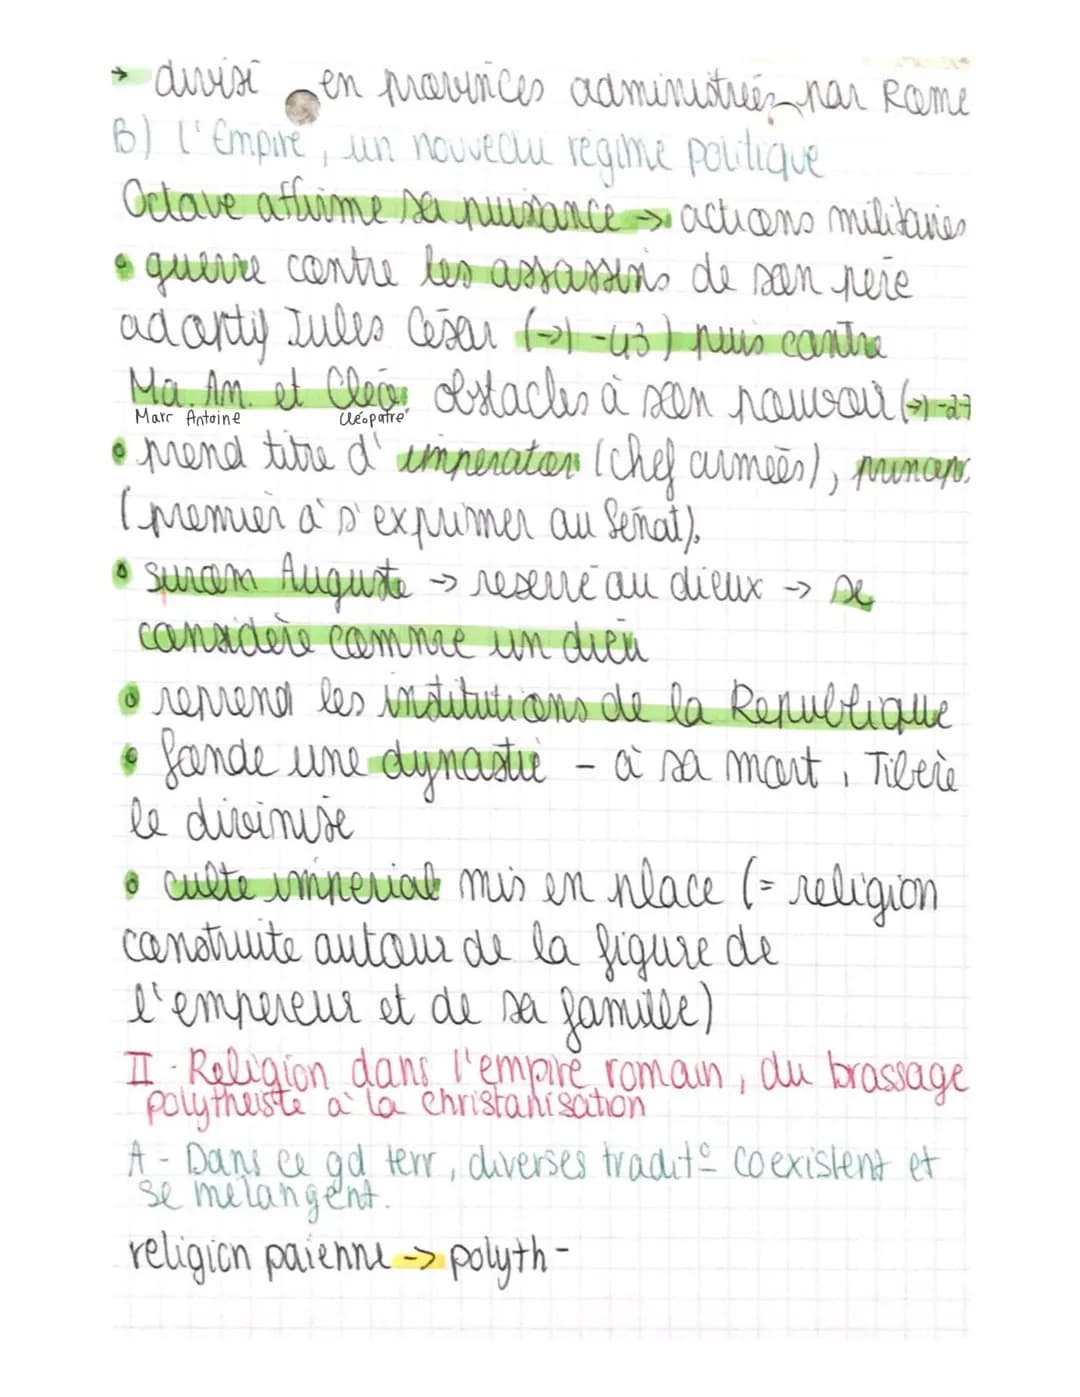 → divisé en provinces administrées par Rome
B) l'Empire, un nouveau régime politique
Octave affirme sa puissance → actions militaires
• guerre contre les assassins de son père
adoptif Jules César (→ -43) puis contre
Ma. An. et Cléo: obstacles à son pouvoir (→ -27
Marc Antoine Cléopatre
• prend titre d'imperator (chef armées), princeps
(premier à s'exprimer au Sénat).
• surnom Auguste → reservé au dieux → se
considère comme un dieu
• reprend les institutions de la Republique
• fonde une dynastie - à sa mort, Tibère
le divinise
• culte impérial mis en place (= religion
construite autour de la figure de
l'empereur et de sa famille)
II - Religion dans l'empire romain, du brassage
polytheiste à la christanisation
A - Dans ce gd terr, diverses tradit° coexistent et
se mélangent.
religion païenne → polyth -